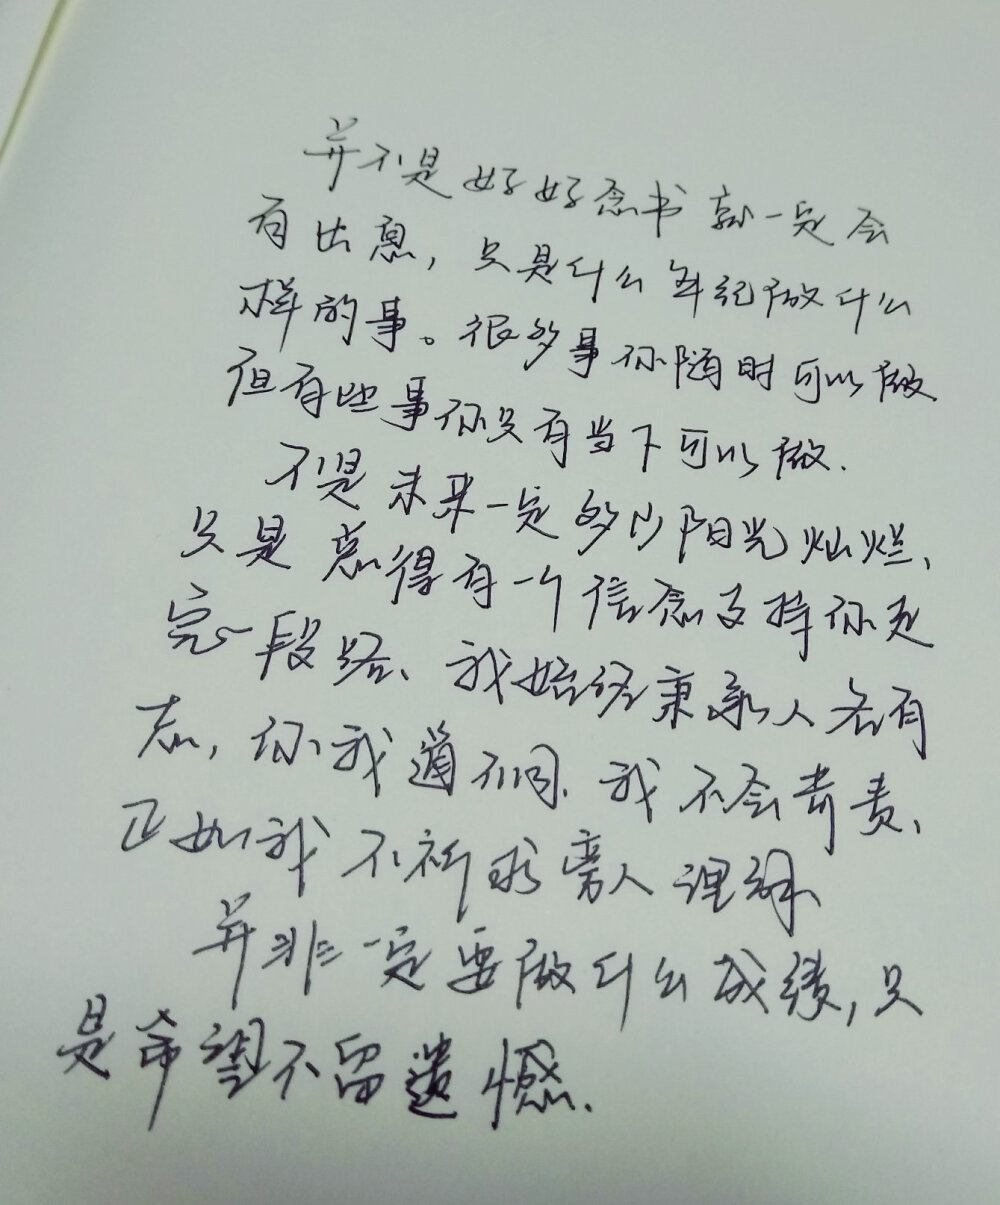 并不是好好念书就一定会
有出息，只是什么年纪做什么
样的事。很多事你随时可以做
但有些事你只有当下可以做.
不是未来一定多少阳光灿烂、
只是总得有一个信念支撑你走
完一段路、我始终秉承人各有
志，你我道不同.我不会苛责、
正如我不祈求旁人理解
并非一定要做什么成绩，只
是希望不留遗憾.